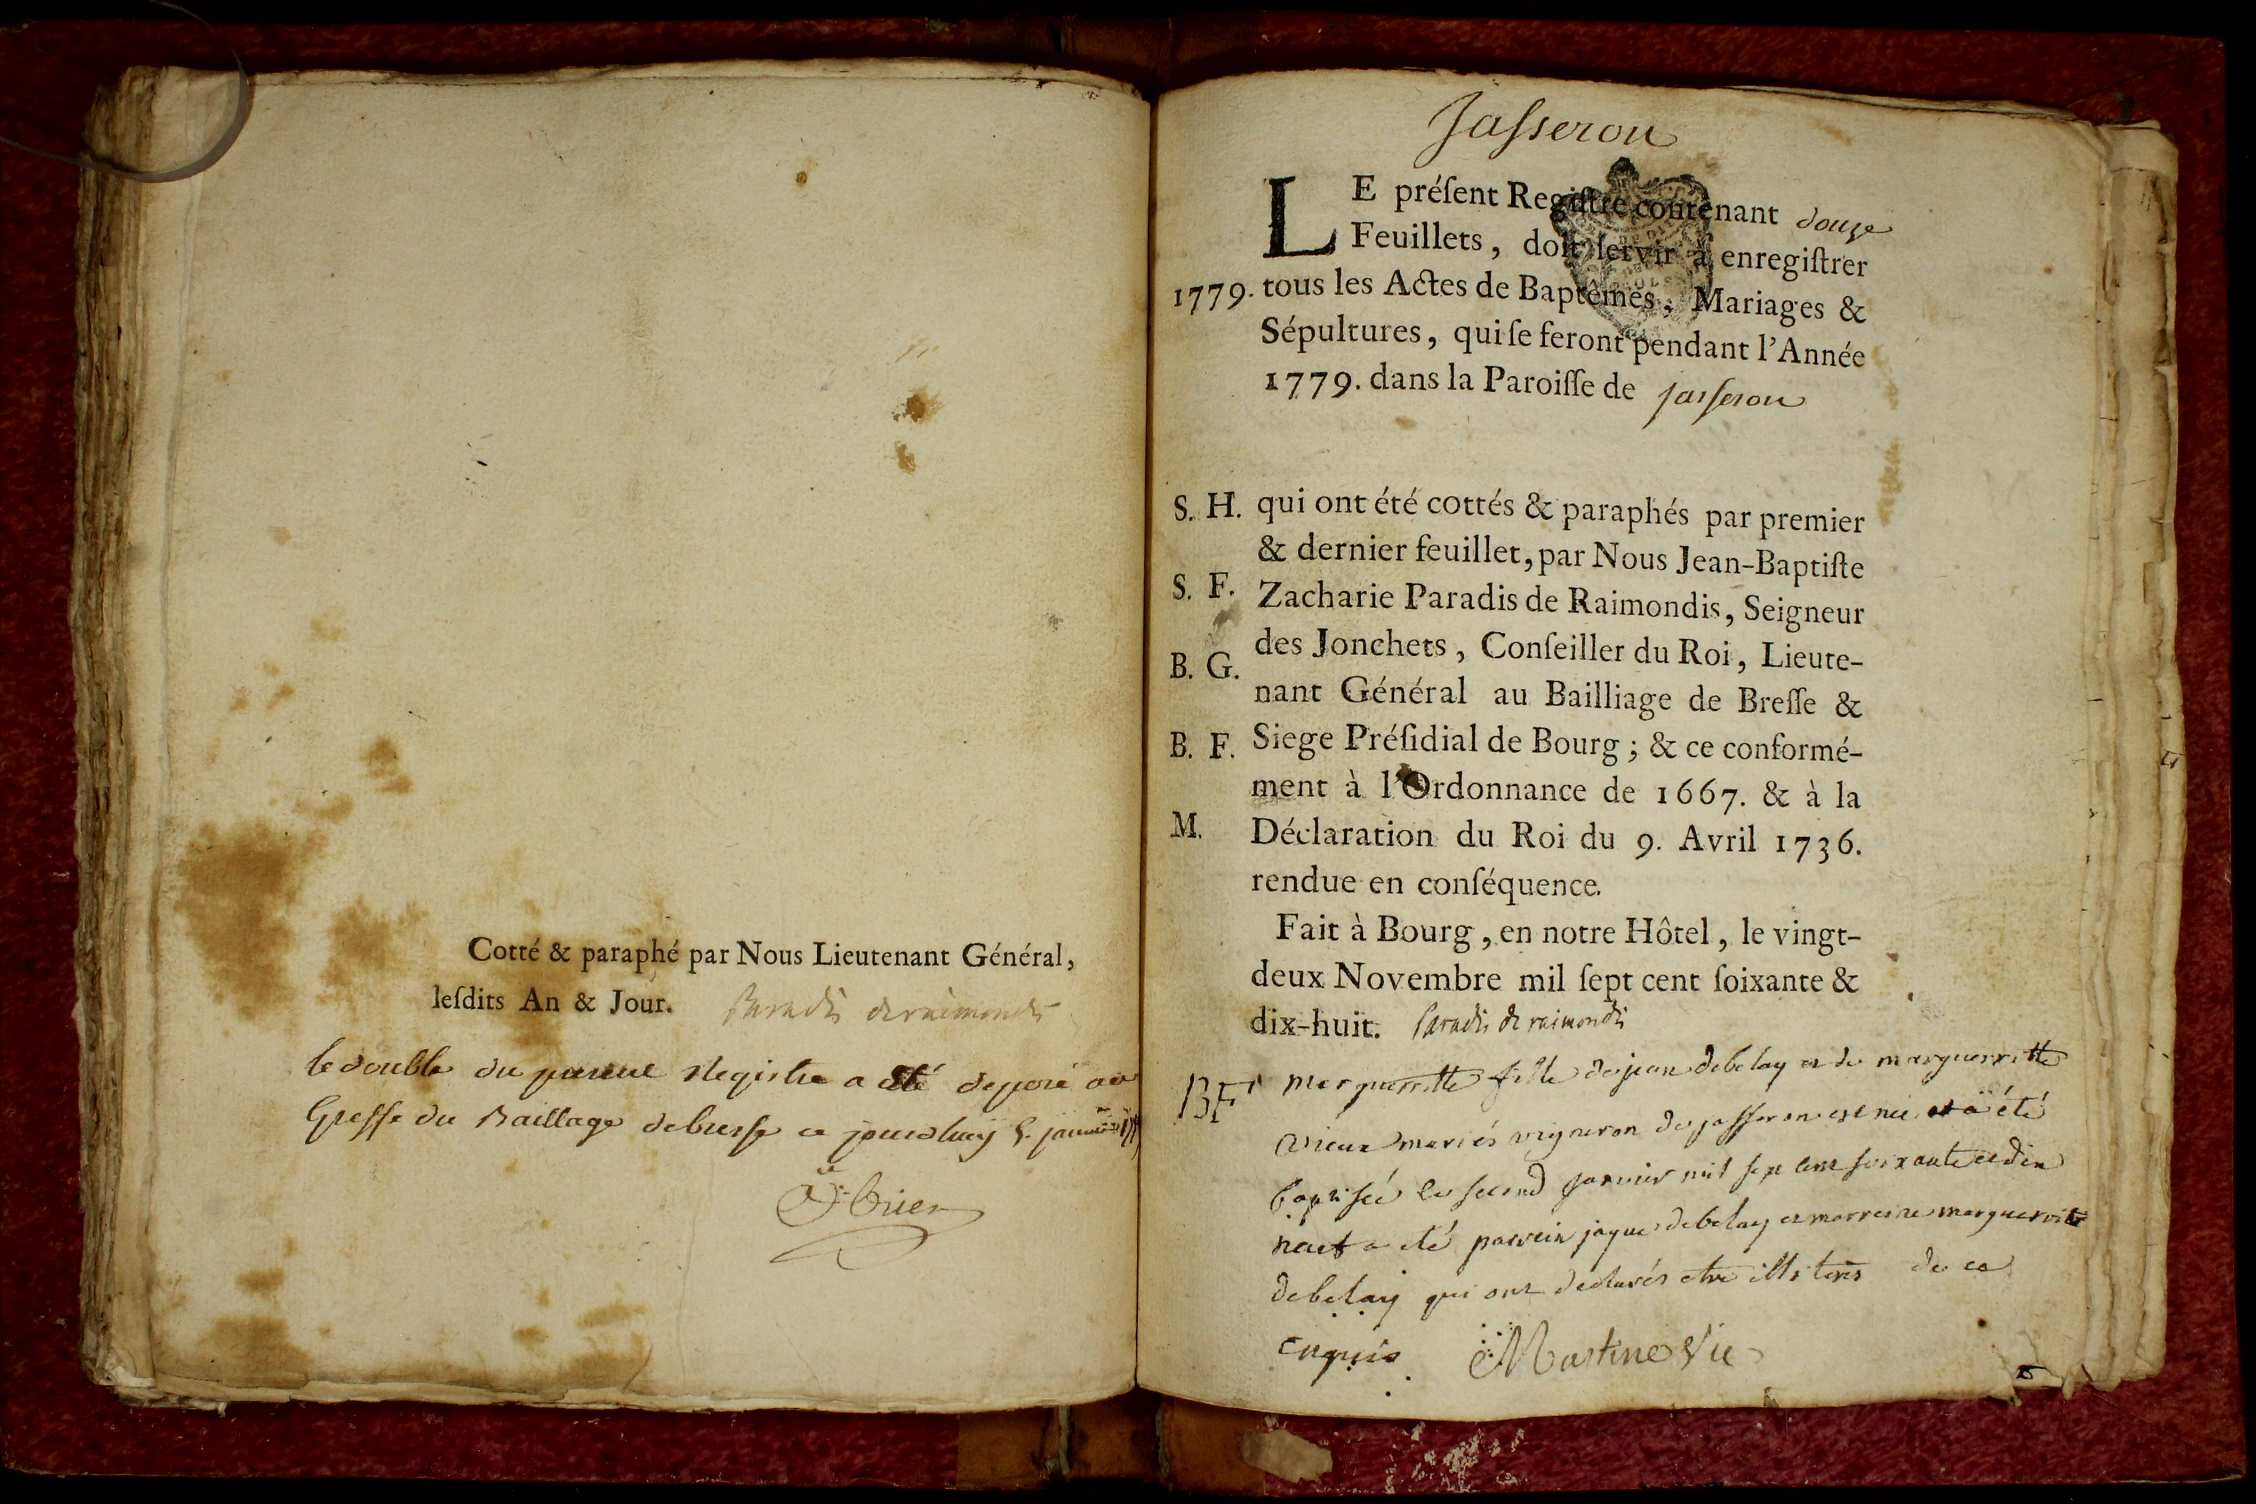 Cotté & paraphé par Nous Lieutenant Général,
leſdits An & Jour. Paradis deraimondis
le double du present Registre a été deposé au
Greffe du Baillage debresse ce jourdhuy janvier
Jasseron
LE préſent Regiſtre contenant douze
Feuillets, doit ſervir à enregiſtrer
1779. tous les Actes de Baptêmes, Mariages &
Sépultures, qui ſe feront pendant l'Année
1779. dans la Paroiſſe de jasseron
S. H. qui ont été cottés & paraphés par premier
& dernier feuillet, par Nous Jean-Baptiſte
S. F. Zacharie Paradis de Raimondis, Seigneur
des Jonchets, Conſeiller du Roi, Lieute-
B. G. nant Général au Bailliage de Breſſe &
B. F. Siege Préſidial de Bourg; & ce conformé-
ment à l'Ordonnance de 1667. & à la
M. Déclaration du Roi du 9. Avril 1736.
rendue en conſéquence.
Fait à Bourg, en notre Hôtel, le vingt-
deux Novembre mil ſept cent ſoixante &
dix-huit. Paradis de raimondis
BF 1 margueritte fille de jean debelay et de marguerritte
vieux mariés vigneron de jasseron est née et a été
baptisée le second janvier mil sept cent soixante et dix
neuf a été parrein jaque debelay et marreine marguerite
debelay qui ont declarés etre illiterés de ce
enquis Martine Vic